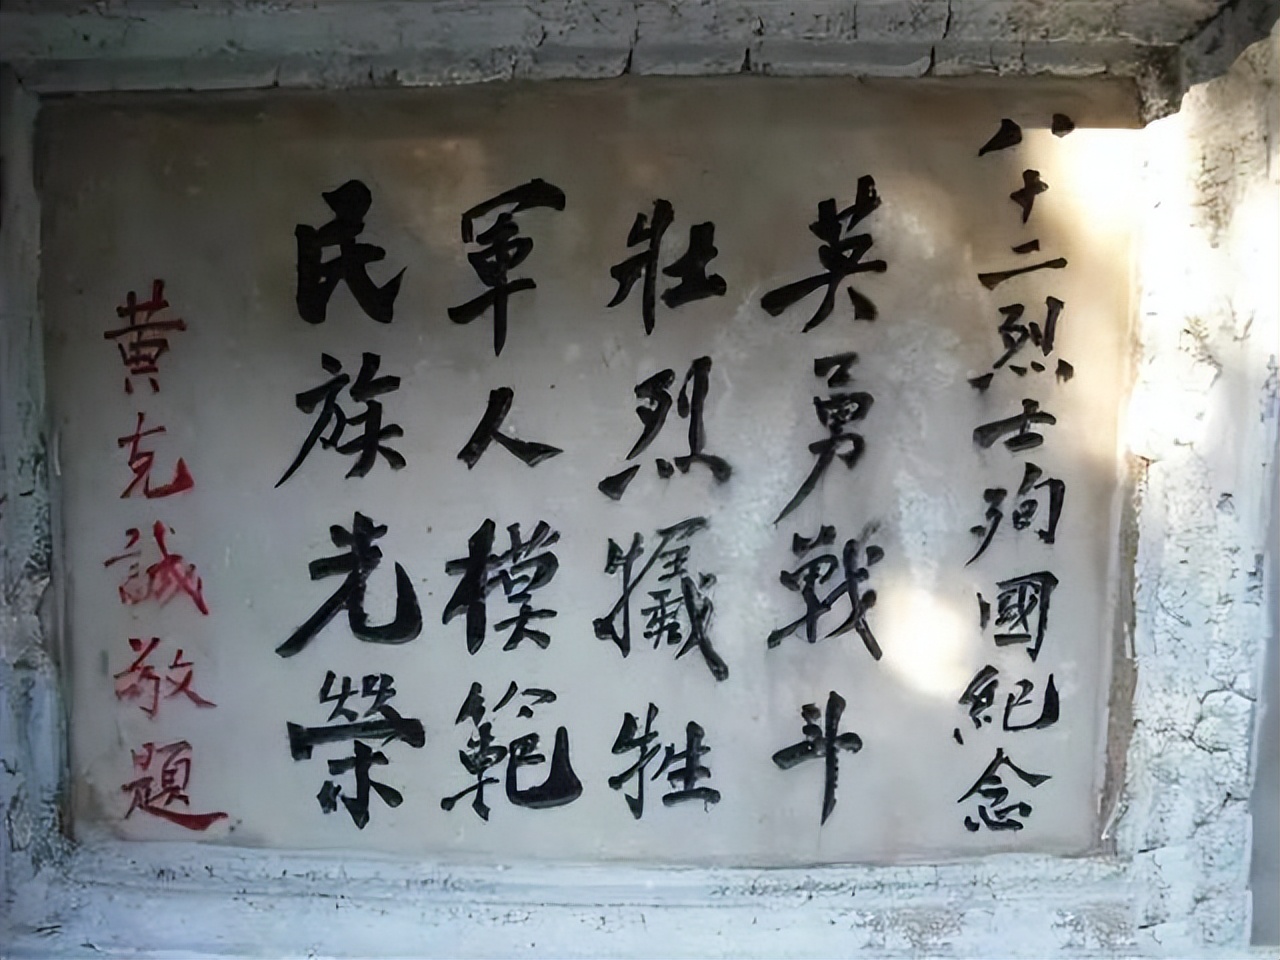 八十二烈士殉國紀念
英勇戰斗
壯烈犧牲
軍人模範
民族光榮
黄克誠敬題